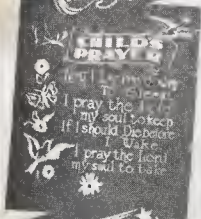 CHILD'S
PRAYER
To Sleep
I pray the
my soul to keep
If I should Die before
I Wake
I pray the Lord
my soul to take